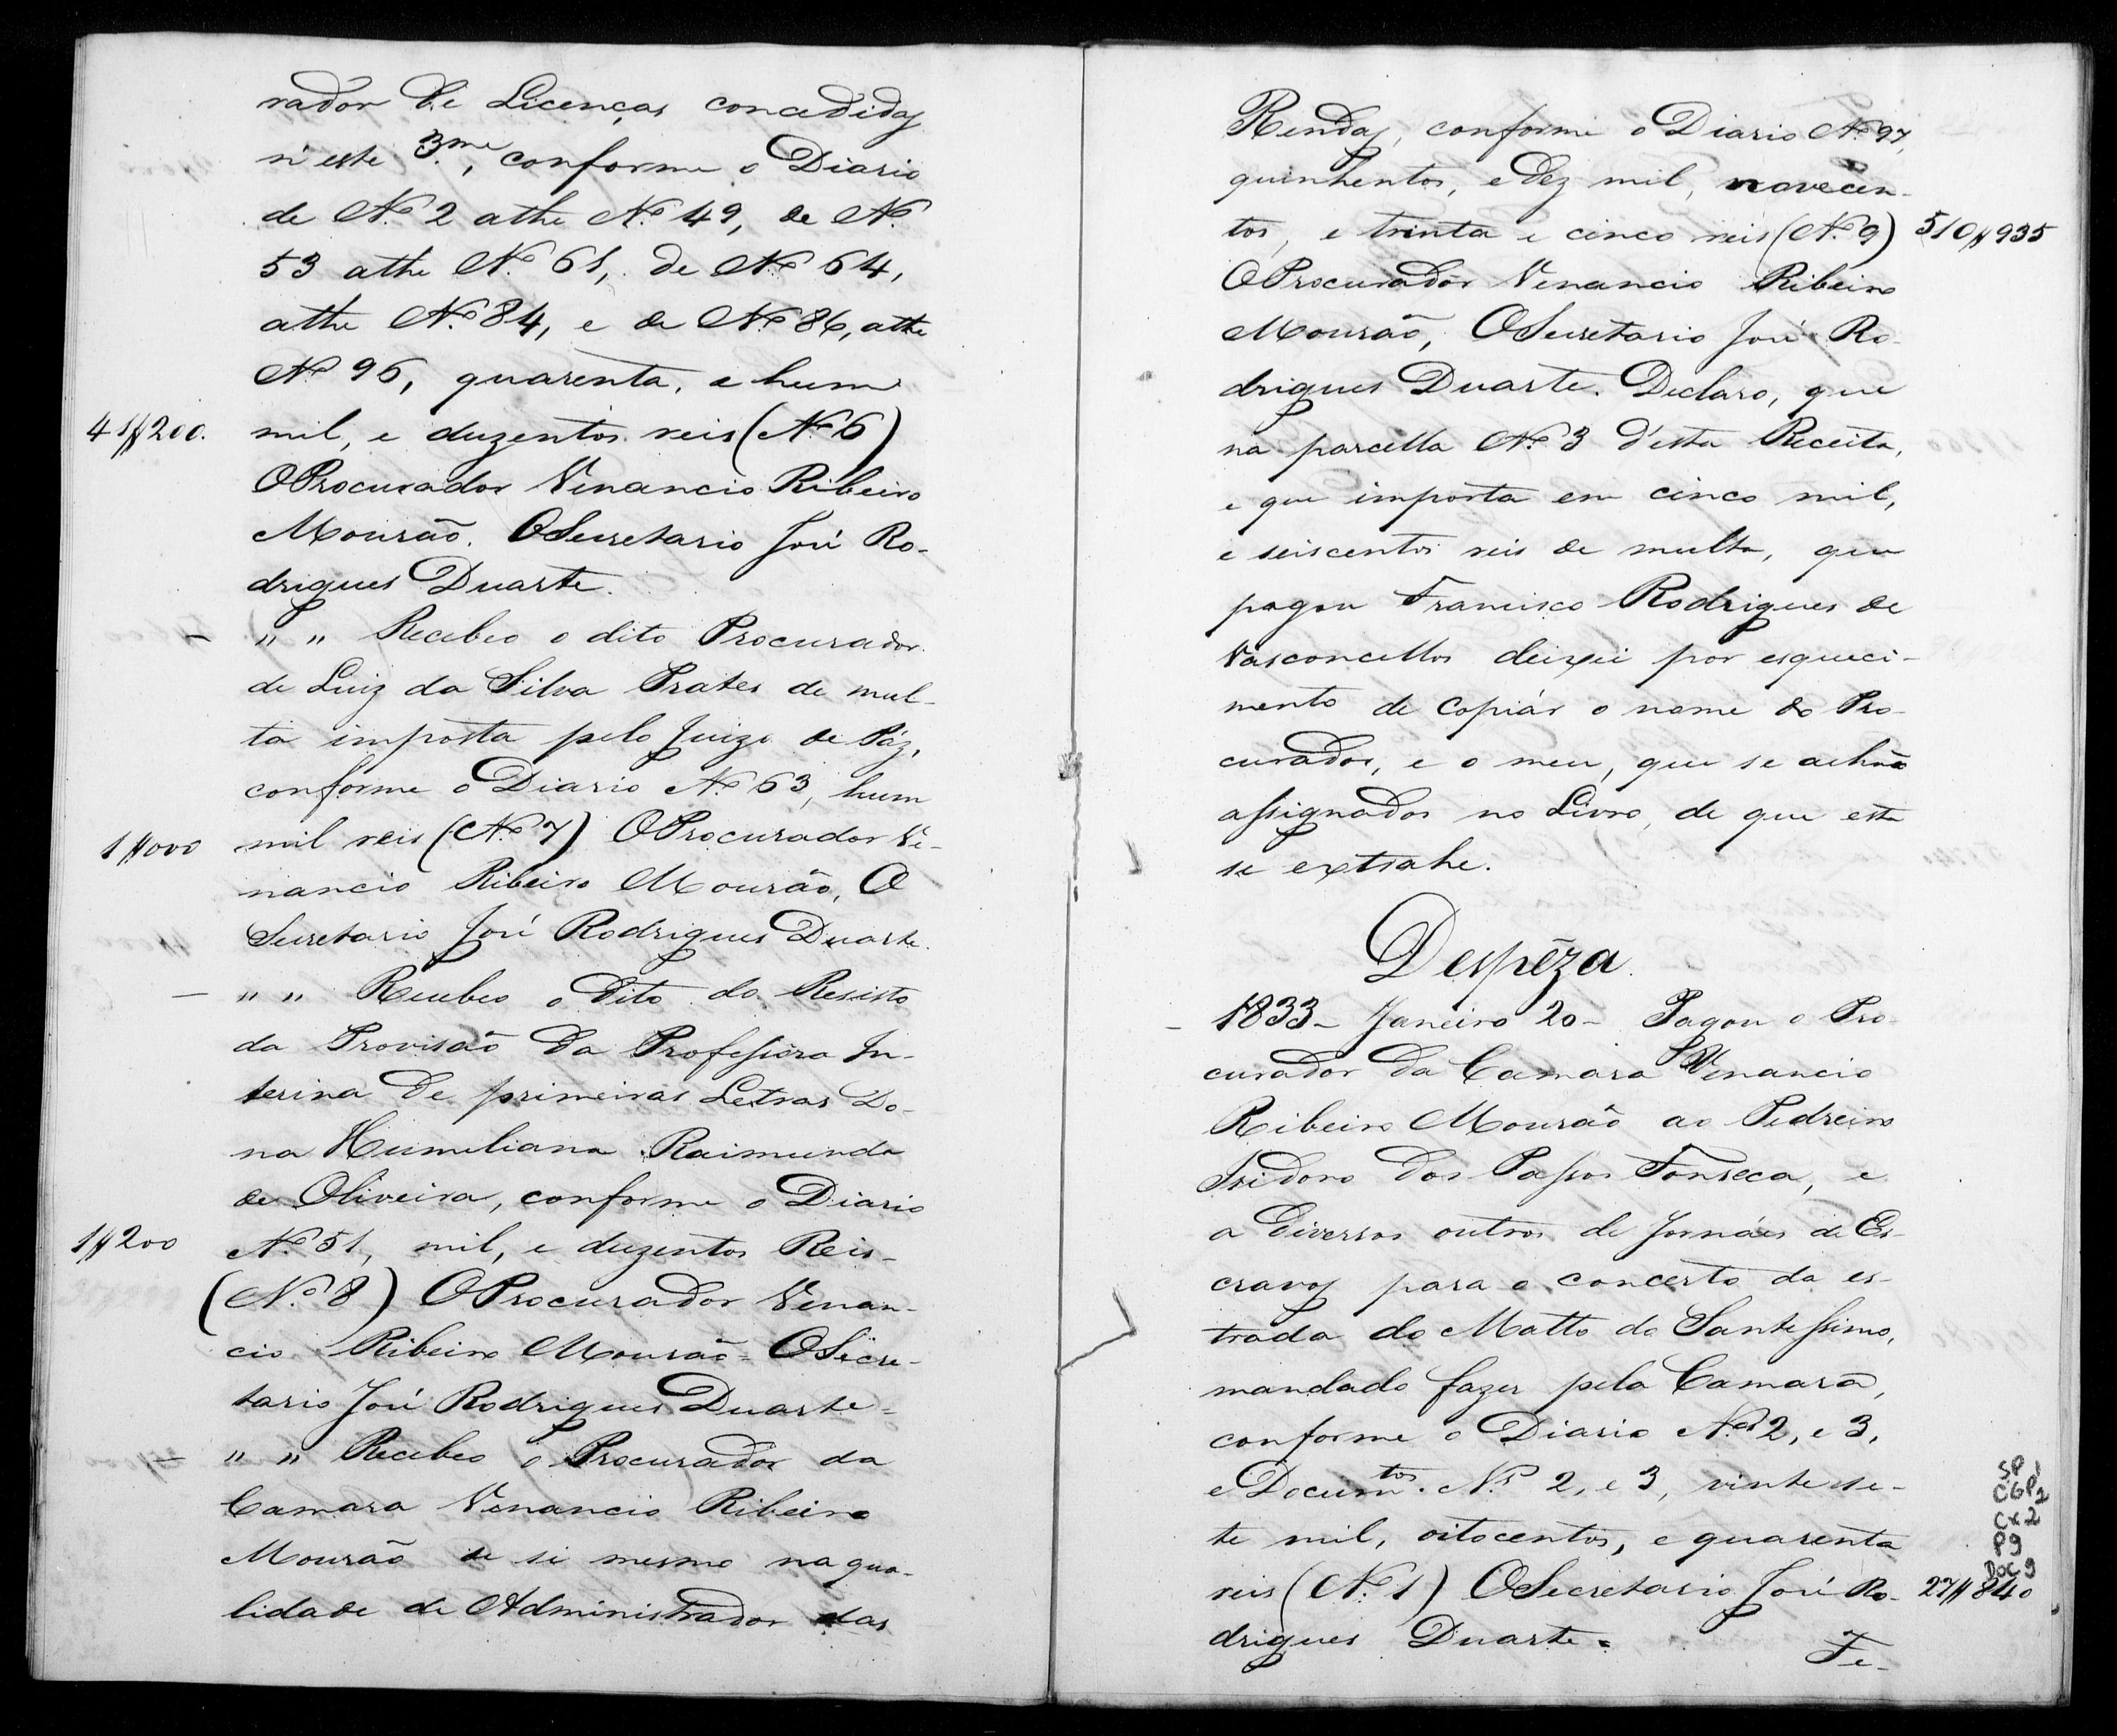 rador de Licenças concedidas
n'este 3.me, conforme o Diario
de N.º 2 athe N.º 49, de N.º
53 athe N.º 61, de N.º 64,
athe N.º 84, e de N.º 86, athe
N.º 96, quarenta, e hum
41$200. mil, e duzentos reis (N.º 6)
O Procurador Venancio Ribeiro
Mourão. O Secretario José Ro-
drigues Duarte.
— " " Recebeo o dito Procurador
de Luiz da Silva Prates de mul-
ta imposta pelo Juizo de Páz,
conforme o Diario N.º 63, hum
1$000 mil reis (N.º 7) O Procurador Ve-
nancio Ribeiro Mourão, O
Secretario José Rodrigues Duarte.
— " " Recebeo o dito do Resisto
da Provisão da Professora In-
terina de primeiras Letras Do-
na Humiliana Raimunda
de Oliveira, conforme o Diario
1$200 N.º 51, mil, e duzentos Reis-
(N.º 8) O Procurador Venan-
cio Ribeiro Mourão = O Secre-
tario José Rodrigues Duarte =
— " " Recebeo o Procurador da
Camara Venancio Ribeiro
Mourão de si mesmo na qua-
lidade de Administrador das
Rendas, conforme o Diario N.º 97,
quinhentos, e dez mil, novecen-
tos, e trinta e cinco reis (N.º 9) 510$935
O Procurador Venancio Ribeiro
Mourão, O Secretario José Ro-
drigues Duarte. Declaro, que
na parcella N.º 3 d'esta Receita,
e que importa em cinco mil,
e seiscentos reis de multa, que
pagou Francisco Rodrigues de
Vasconcellos deixei por esqueci-
mento de copiár o nome do Pro-
curador, e o meu, que se achão
assignados no Livro, de que esta
se extrahe.
Despêza.
— 1833 - Janeiro 20 - Pagou o Pro-
curador da Camara Venancio
Ribeiro Mourão ao Pedreiro
Isidoro dos Passos Fonseca, e
a diversos outros de Jornáes de Es-
cravos para o concerto da es-
trada do Matto do Santessimo,
mandado fazer pela Camara,
conforme o Diario N.os 2, e 3,
e Docum.tos N.s 2, e 3, vinte se-
te mil, oitocentos, e quarenta
reis (N.º 1) O Secretario José Ro- 27$840
drigues Duarte =
Fe-
SP
CGP2
Cx 2
P9
DOC 9